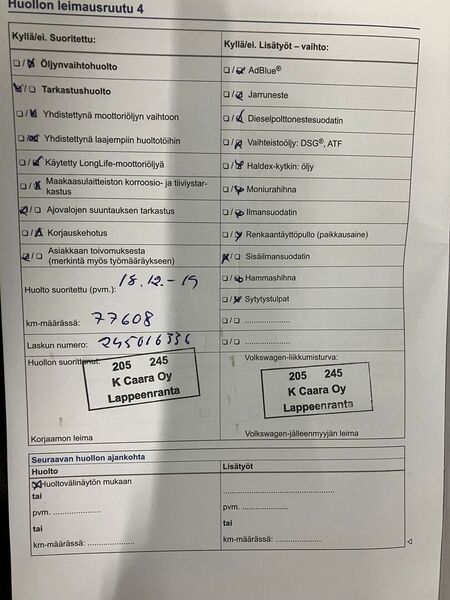 Huollon leimausruutu 4
Kyllä/ei. Suoritettu:
Kyllä/ei. Lisätyöt – vaihto:
Öljynvaihtohuolto
Tarkastushuolto
Yhdistettynä moottoriöljyn vaihtoon
Yhdistettynä laajempiin huoltotöihin
Käytetty LongLife-moottoriöljyä
Maakaasulaitteiston korroosio- ja tiiviystar-
kastus
Ajovalojen suuntauksen tarkastus
Korjauskehotus
Asiakkaan toivomuksesta
(merkintä myös työmääräykseen)
AdBlue®
Jarruneste
Dieselpolttonestesuodatin
Vaihteistoöljy: DSG®, ATF
Haldex-kytkin: öljy
Moniurahihna
Ilmansuodatin
Renkaantäyttöpullo (paikkausaine)
Sisäilmansuodatin
Hammashihna
Sytytystulpat
Huolto suoritettu (pvm.): 18.12.-19
km-määrässä: 77608
Laskun numero: 245016336
Huollon suorittanut:
205 245
K Caara Oy
Lappeenranta
Korjaamon leima
Volkswagen-liikkumisturva:
205 245
K Caara Oy
Lappeenranta
Volkswagen-jälleenmyyjän leima
Seuraavan huollon ajankohta
Huolto
Huoltovälinäytön mukaan
tai
pvm. ....................
tai
km-määrässä: ....................
Lisätyöt
pvm. ....................
tai
km-määrässä: ....................